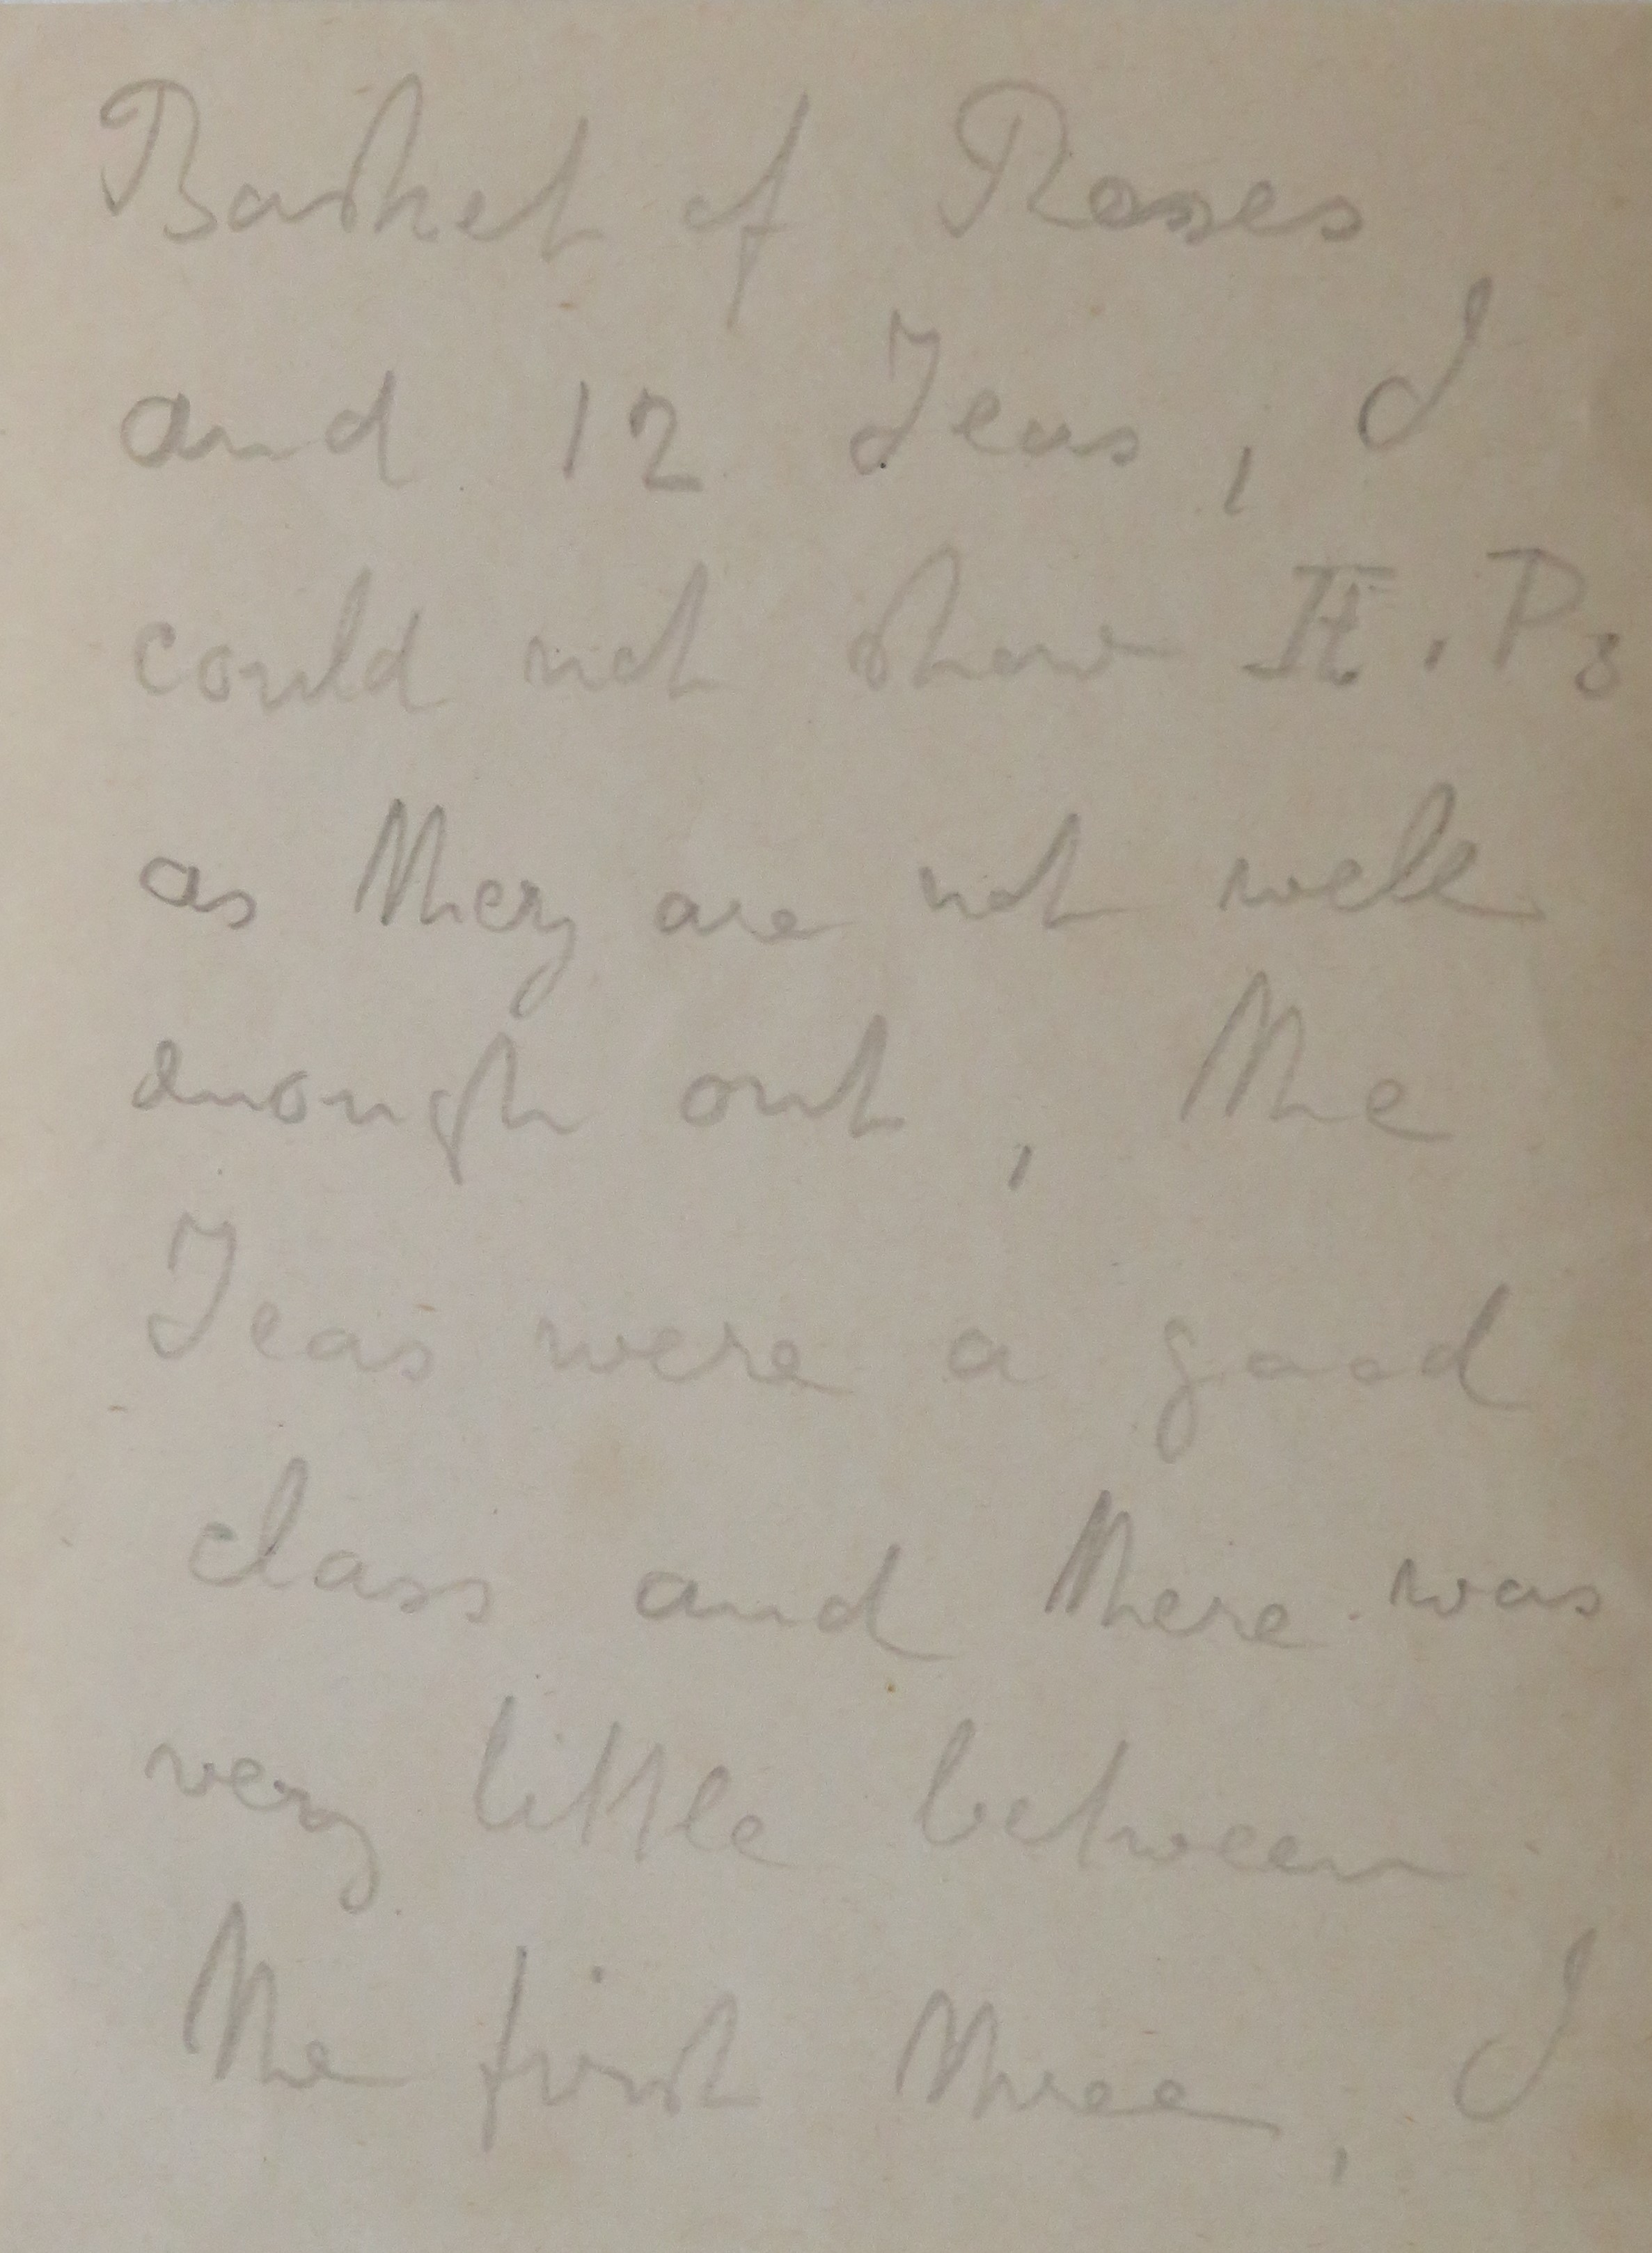 Basket of Roses
and 12 Teas, I
could not show H.Ps
as they are not well
enough out, the
Teas were a good
class and there was
very little between
the first three, I